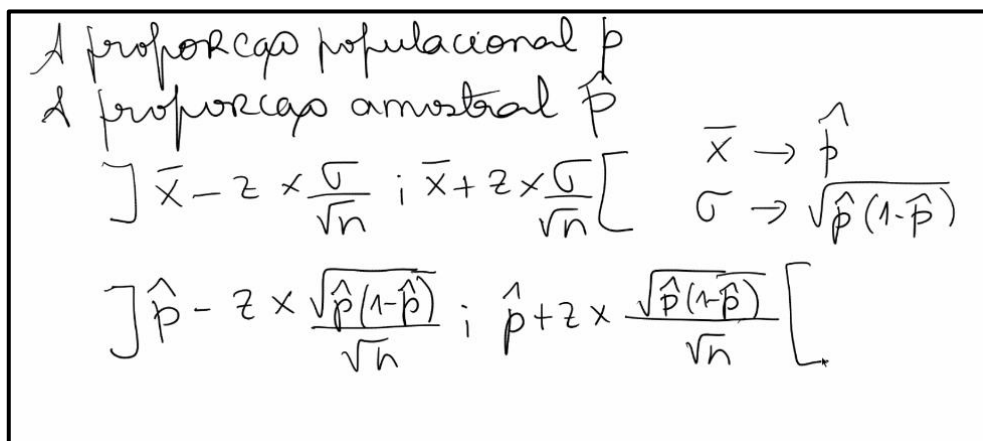 A proporcao populacional p
A proporcao amostral p̂
] x̄ - z × σ/√n ; x̄ + z × σ/√n [
x̄ → p̂
σ → √(p̂(1-p̂))
] p̂ - z × √(p̂(1-p̂))/√n ; p̂ + z × √(p̂(1-p̂))/√n [